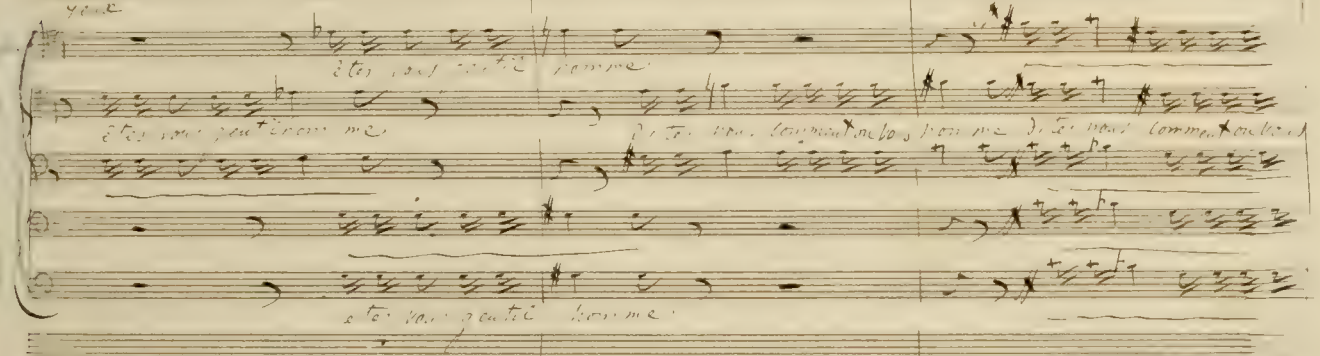 yeux
êtes vous gentil homme
êtes vous gentilhom me Dites nous comment on vous nom me Dites nous comment on vous
êtes vous gentil hom me